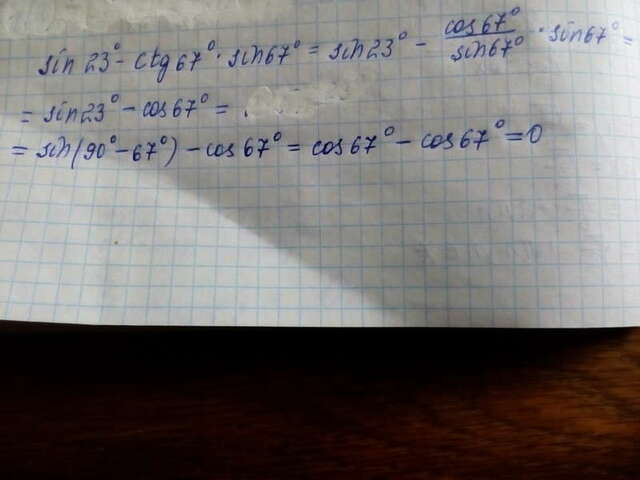 sin 23° - ctg 67° · sin 67° = sin 23° - cos 67° / sin 67° · sin 67° =
= sin 23° - cos 67° =
= sin(90° - 67°) - cos 67° = cos 67° - cos 67° = 0